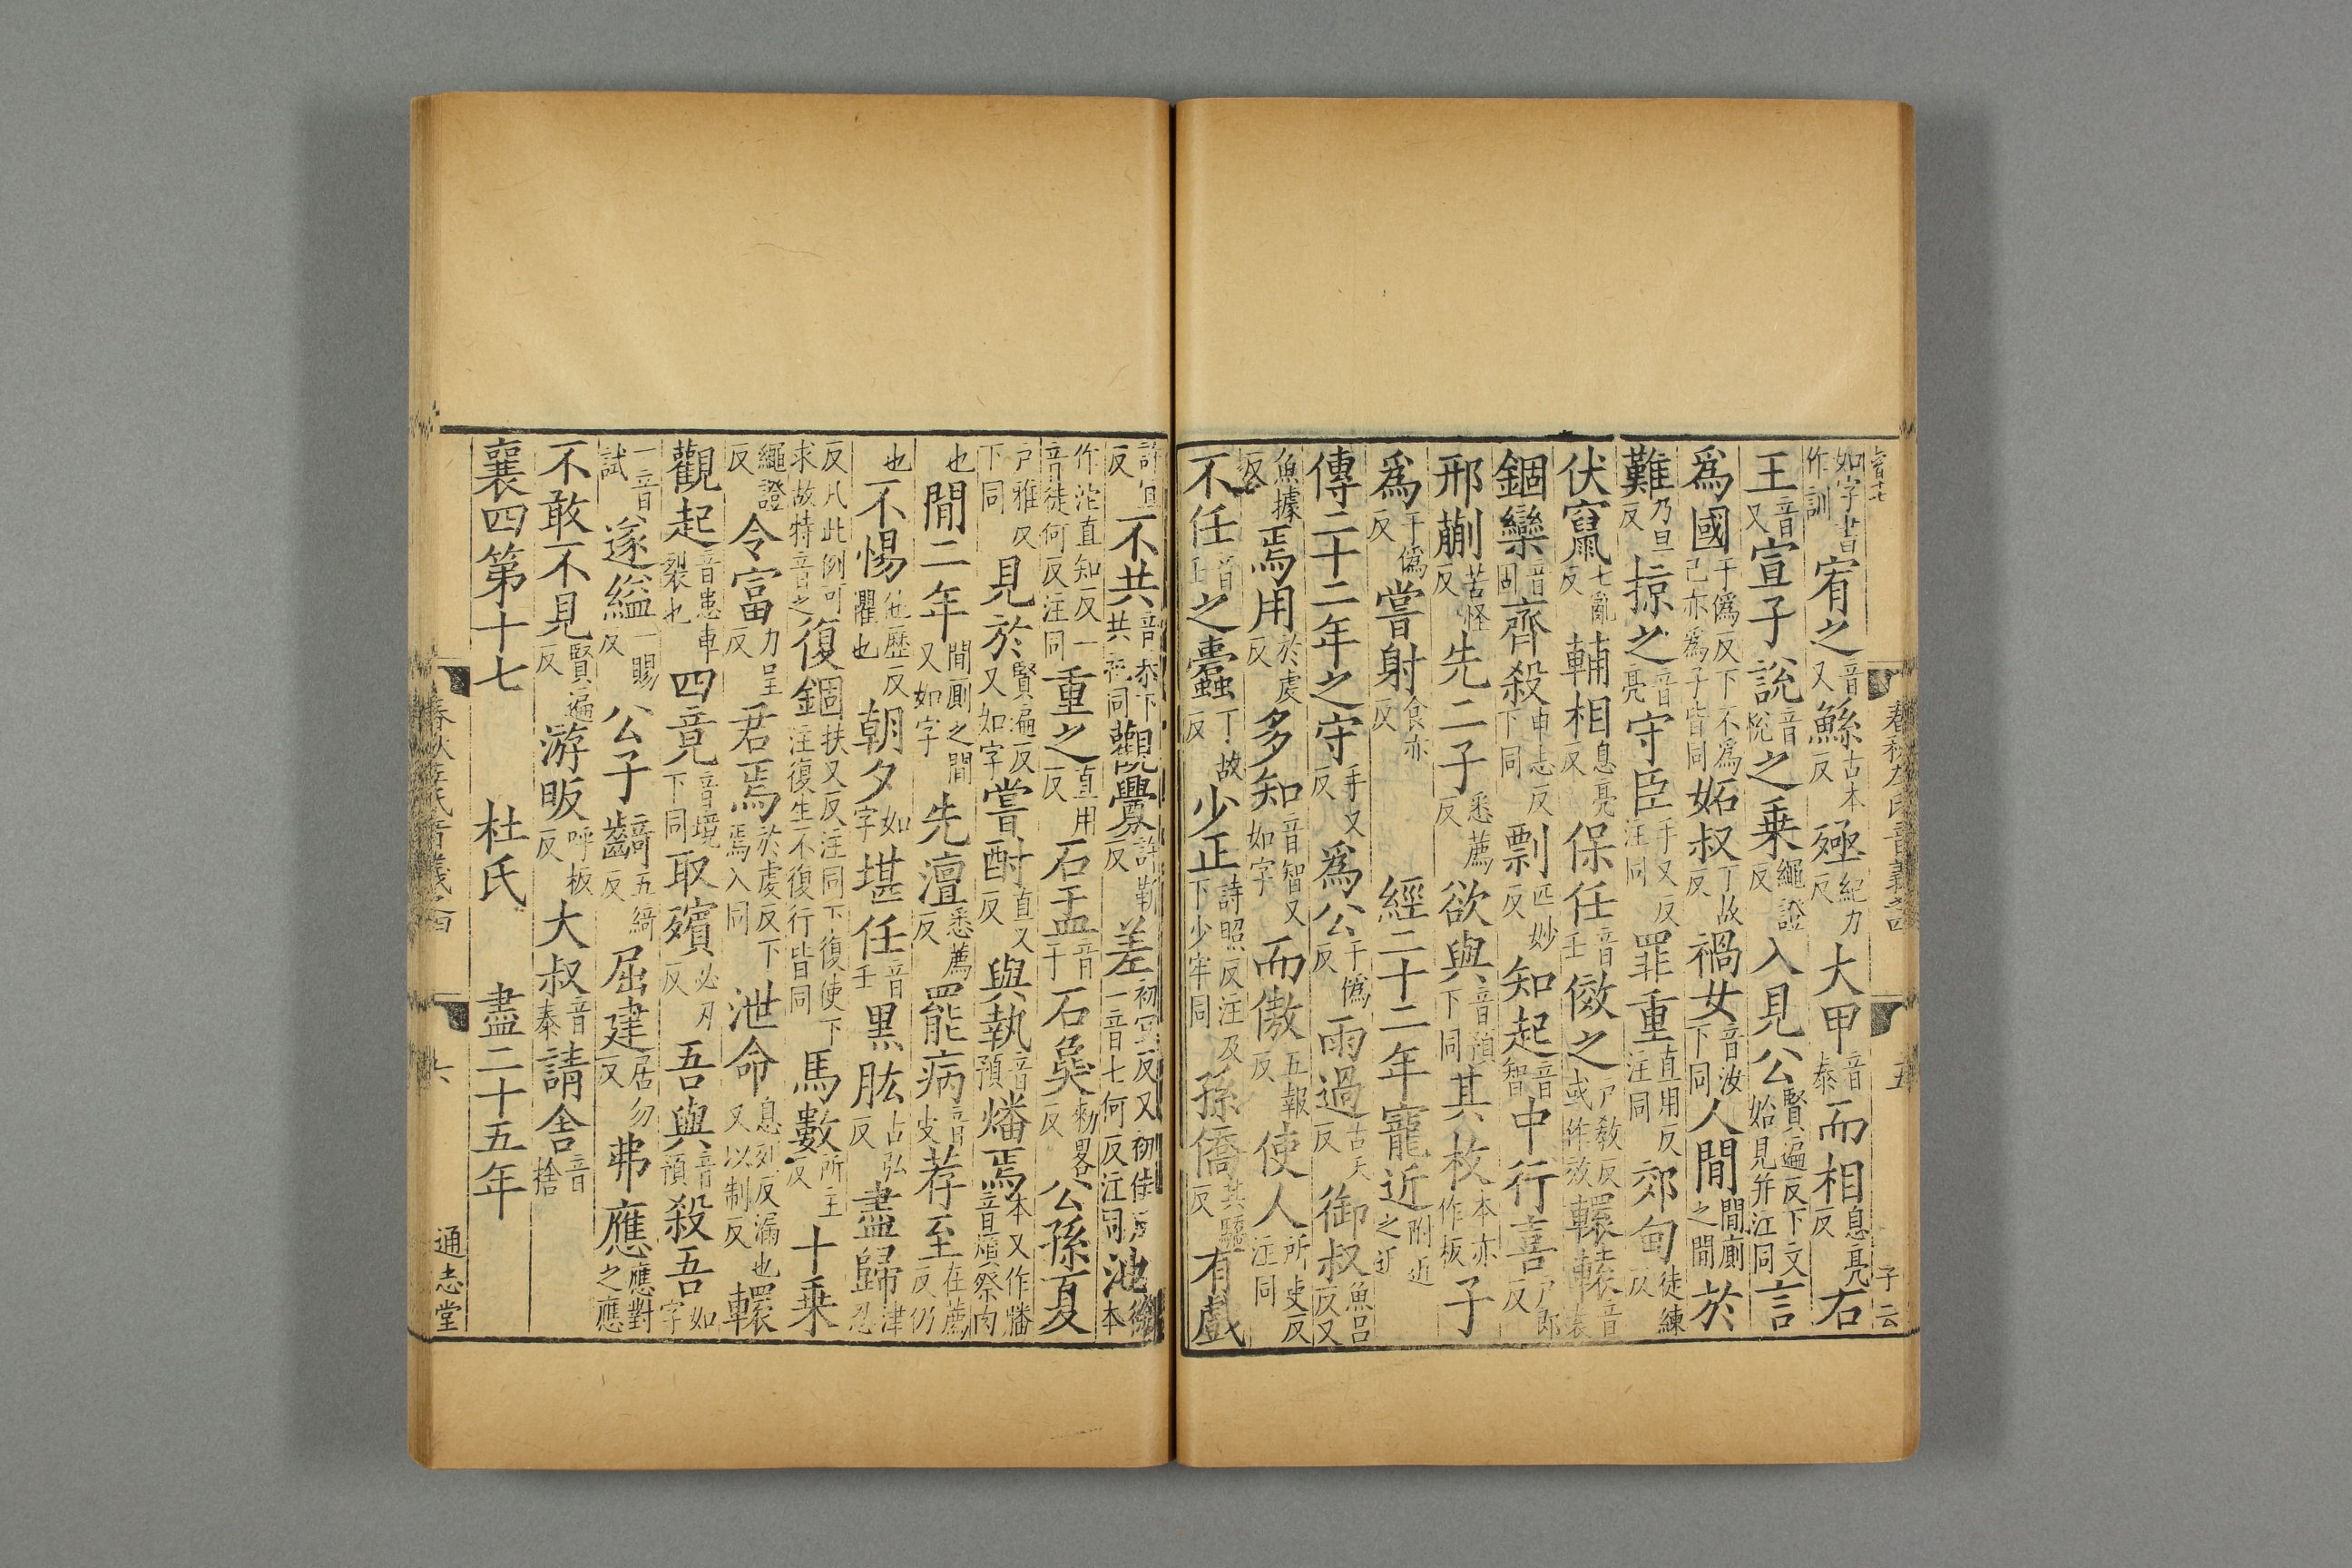 如字書作訓宥之音又鯀古本反殛紀力反大甲音泰而相息亮反右
王音又宣子說音悅之乗繩證反入見公賢遍反下文始見并注同言
爲國于僞反下不爲己亦爲子皆同妬叔丁故反禍女音汝下同人閒閒廁之閒於
難乃旦反掠之音亮守臣手又反注同罪重直用反注同郊甸徒練反
伏竄七亂反輔相息亮反保任音壬傚之户敎反或作效轘轅音袁
錮欒音固齊殺申志反下同剽匹妙反知起音智中行喜户郎反
邢蒯苦怪反先二子悉薦反欲與音預下同其枚本亦作板子
爲于僞反嘗射食亦反經二十二年寵近附近之近
傳二十二年之守手又反爲公于僞反雨過古禾反御叔魚吕反又
魚據反焉用於虔反多知音智又如字而傲五報反使人所吏反注同
不任音壬之蠧丁故反少正詩照反注及下少牢同孫僑其驕反有戲
許宜反不共音恭下共祀同觀釁許靳反差初宜反又初佳反一音七何反注同池徐本
作沱直知反一音徒何反注同重之直用反石盂音于石㚟勑畧反公孫夏
户雅反下同見於賢遍反又如字嘗酎直又反與執音預燔焉本又作膰音煩祭肉
也閒二年閒廁之閒又如字先澶悉薦反罷病音皮荐至在薦反仍
也不惕他歷反懼也朝夕如字堪任音壬黑肱古弘反盡歸津忍
反凡此例可求故特音之復錮扶又反注同下復使下注復生不復行皆同馬數所主反十乗
繩證反令富力呈反君焉於虔反下焉入同泄命息列反漏也又以制反轘
觀起音患車裂也四竟音境下同取殯必刃反吾與音預殺吾如字
一音試遂縊一賜反公子齮五綺反屈建居勿反弗應應對之應
不敢不見賢遍反游昄呼板反大叔音泰請舍音捨
襄四第十七 杜氏 盡二十五年
通志堂